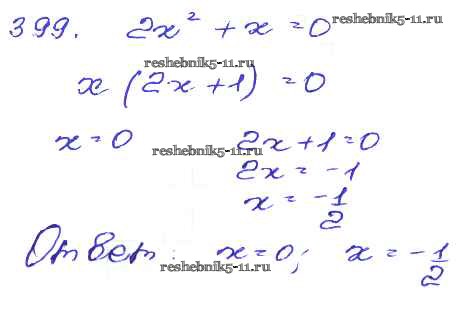 399. 2x² + x = 0 reshebnik5-11.ru
reshebnik5-11.ru
x (2x + 1) = 0
x = 0 reshebnik5-11.ru 2x + 1 = 0
2x = -1
x = -1/2
Ответ: x = 0; x = -1/2
reshebnik5-11.ru